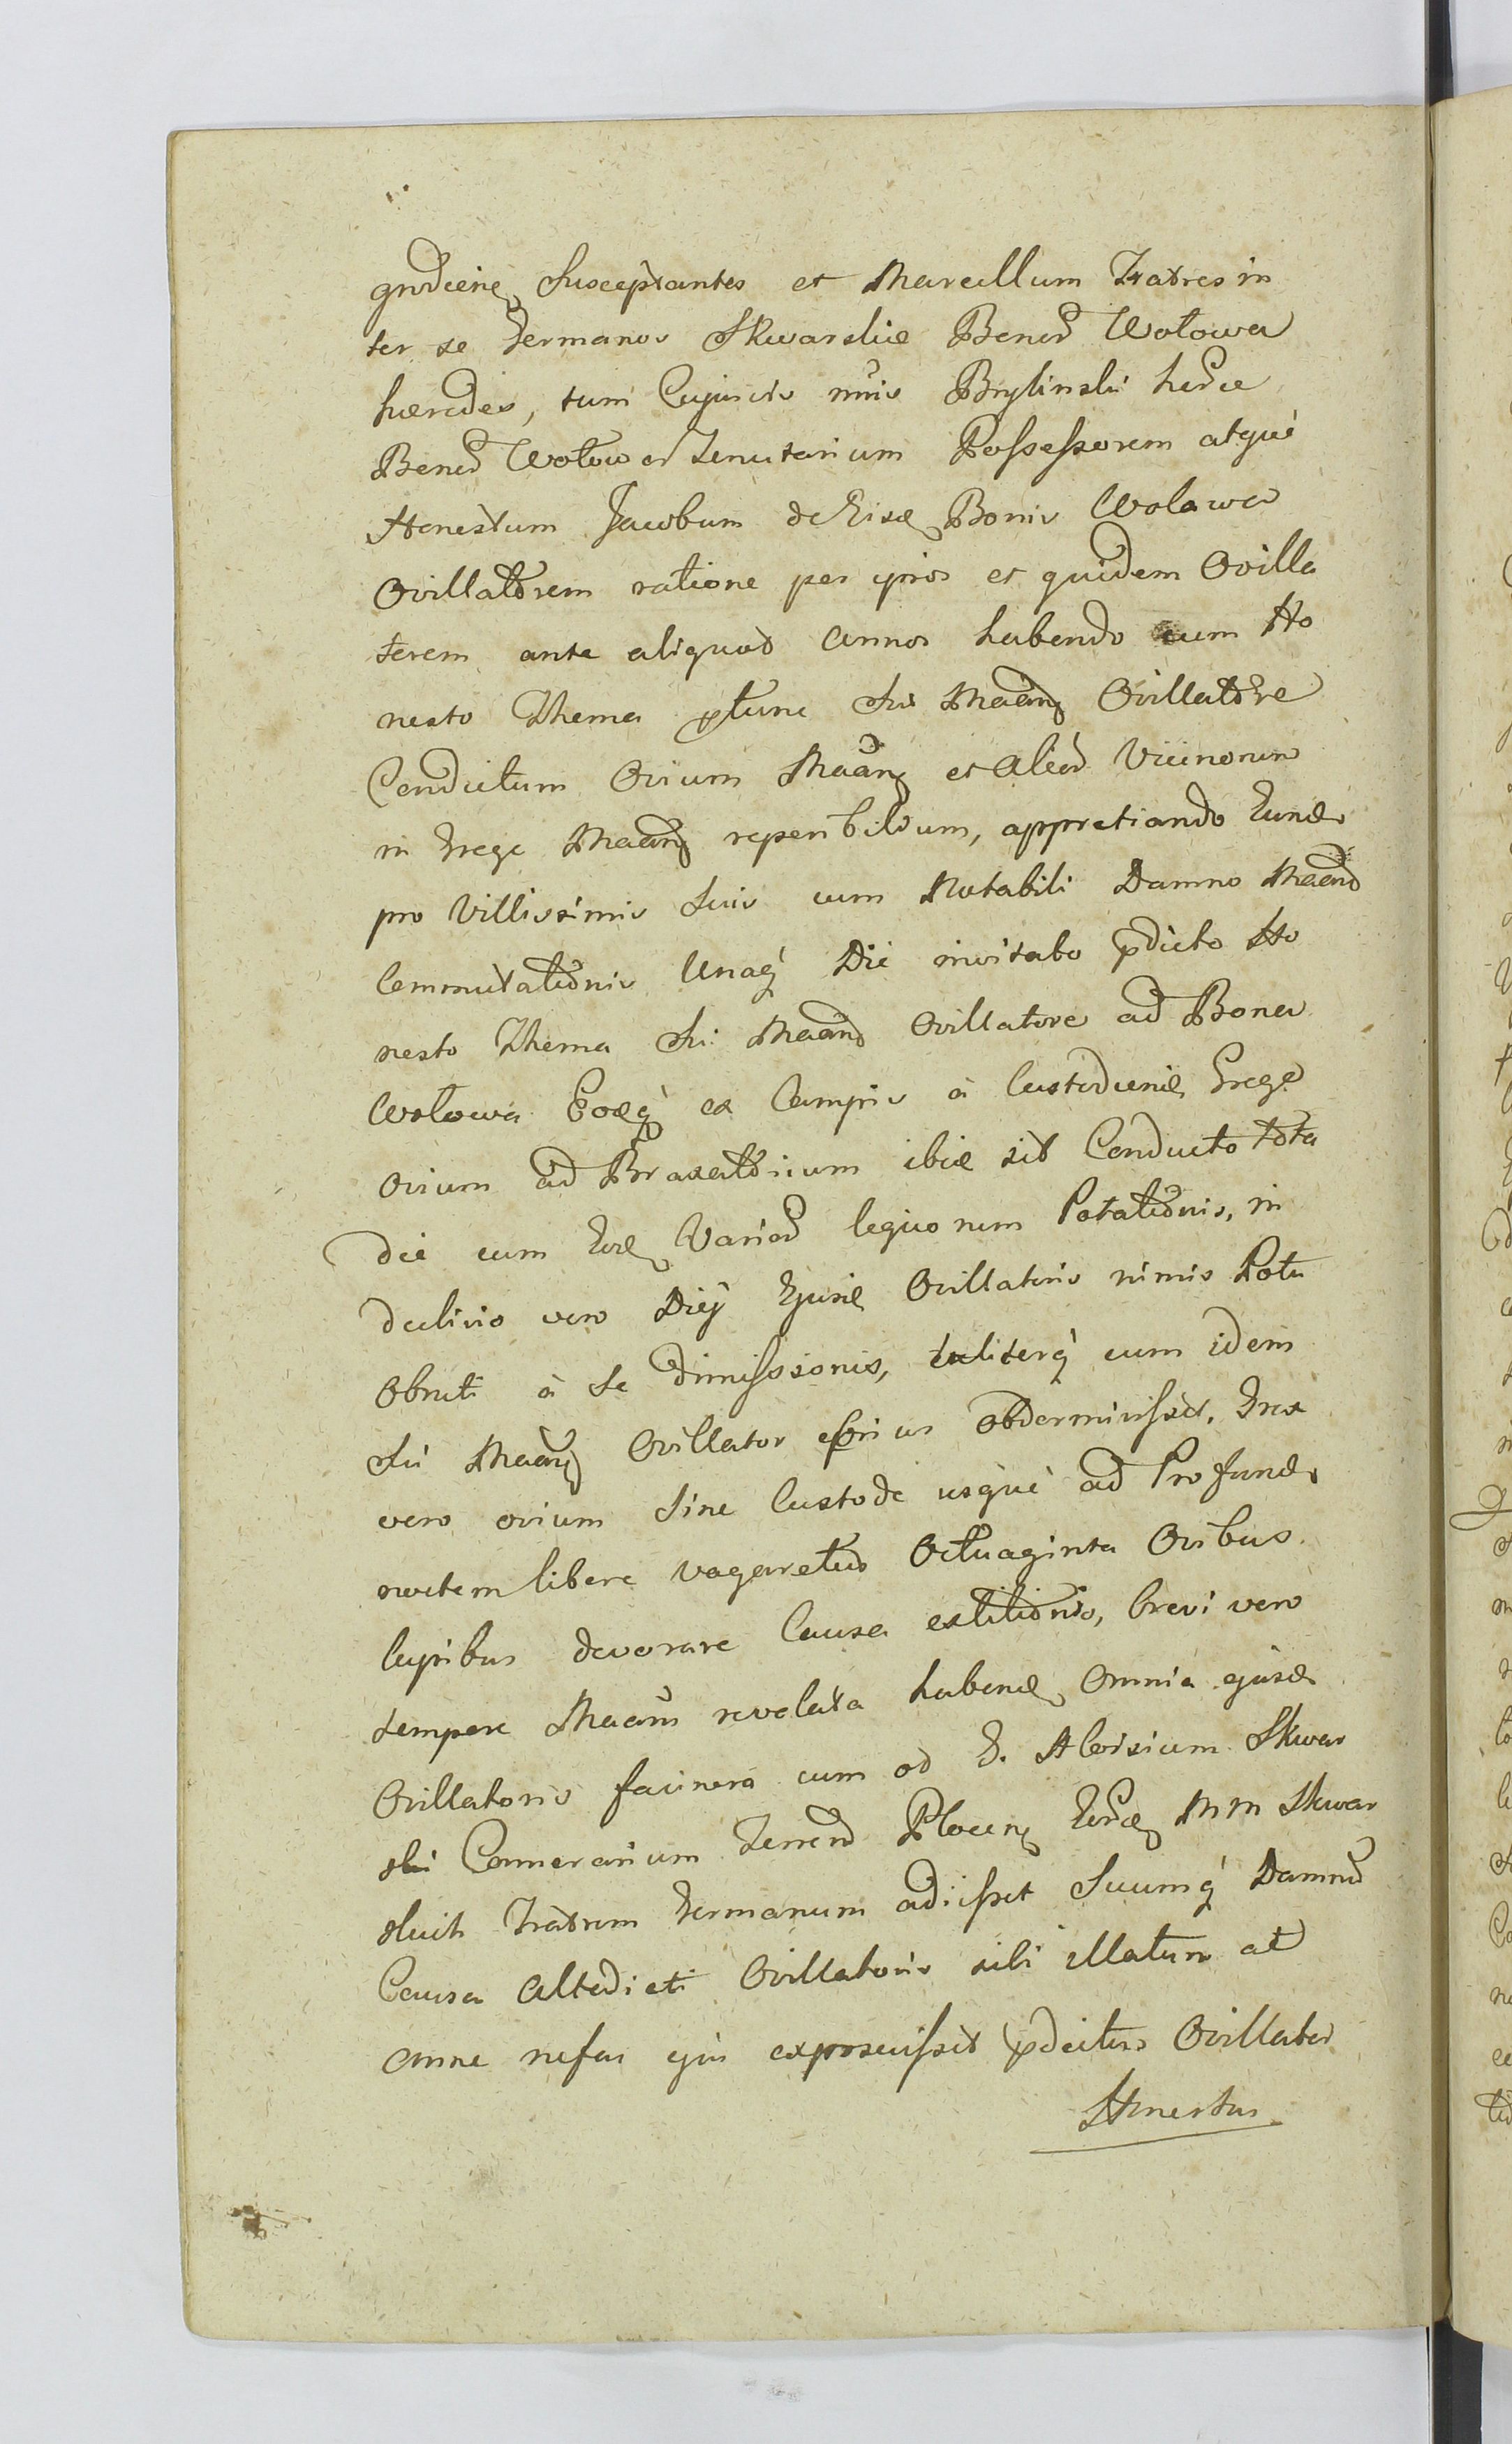 gndciene Susceptantes et Marcellum Fratres in
ter se Germanos Skwarskie Bonor Wołowa
hæredes, tum Cujuscis nnis Brylinski hrde
Bonor Wołowa Tenutarium Possessorem atque
Honestum Jacobum de Eisd Bonis Wolowa
Ovillatorem ratione per ipsos et quidem Ovilla
torem ante aliquod Annos habendo cum Ho
nesto Thoma ptunc Sui Maan Ovillatore
Conductum Ovium Maan et alior Vicinorum
in Grege Maan reperibilium, appretiando Eund
pro Villissimis Suis cum Notabili Damno Maand
Commutationis Unaq Die invitato pdicto Ho
nesto Thoma Sui Maand Ovillatore ad Bona
Wołowa Eoq ex Campis à Custodiend Grege
Ovium ad Braxatorium ibid sit Conducto tota
die cum Eod Varior liquorum Potationis, in
declivio vero Diey Ejusd Ovillatoris nimis Potu
Obruti à Se Dimissionis, taliterq cum idem
Sui Maan Ovillator obdormivisset, Grex
vero ovium Sine Custode usque ad Profund
noctem libere vagaretur Octuaginta Ovibus
lupibus devorare Causa extitionis, brevi vero
tempore Maan revelata habend Omnia ejusd
Ovillatoris facinora cum ad G. Aloisium Skwar
ski Camerarium Terrend Plocen Eord MM Skwar
skich Fratrem Germanum adiisset Suumq Damnu
Causa Altedicti Ovillatoris sibi illatum at
omne nefas ejus exposuisset pdictus Ovillator
Honestus